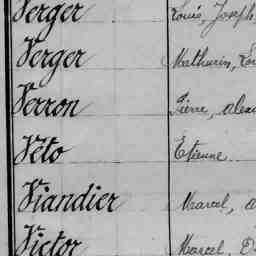 Verger Louis, Joseph
Verger Mathurin,
Verron Pierre,
Véto Etienne
Viandier Marcel,
Victor Marcel,